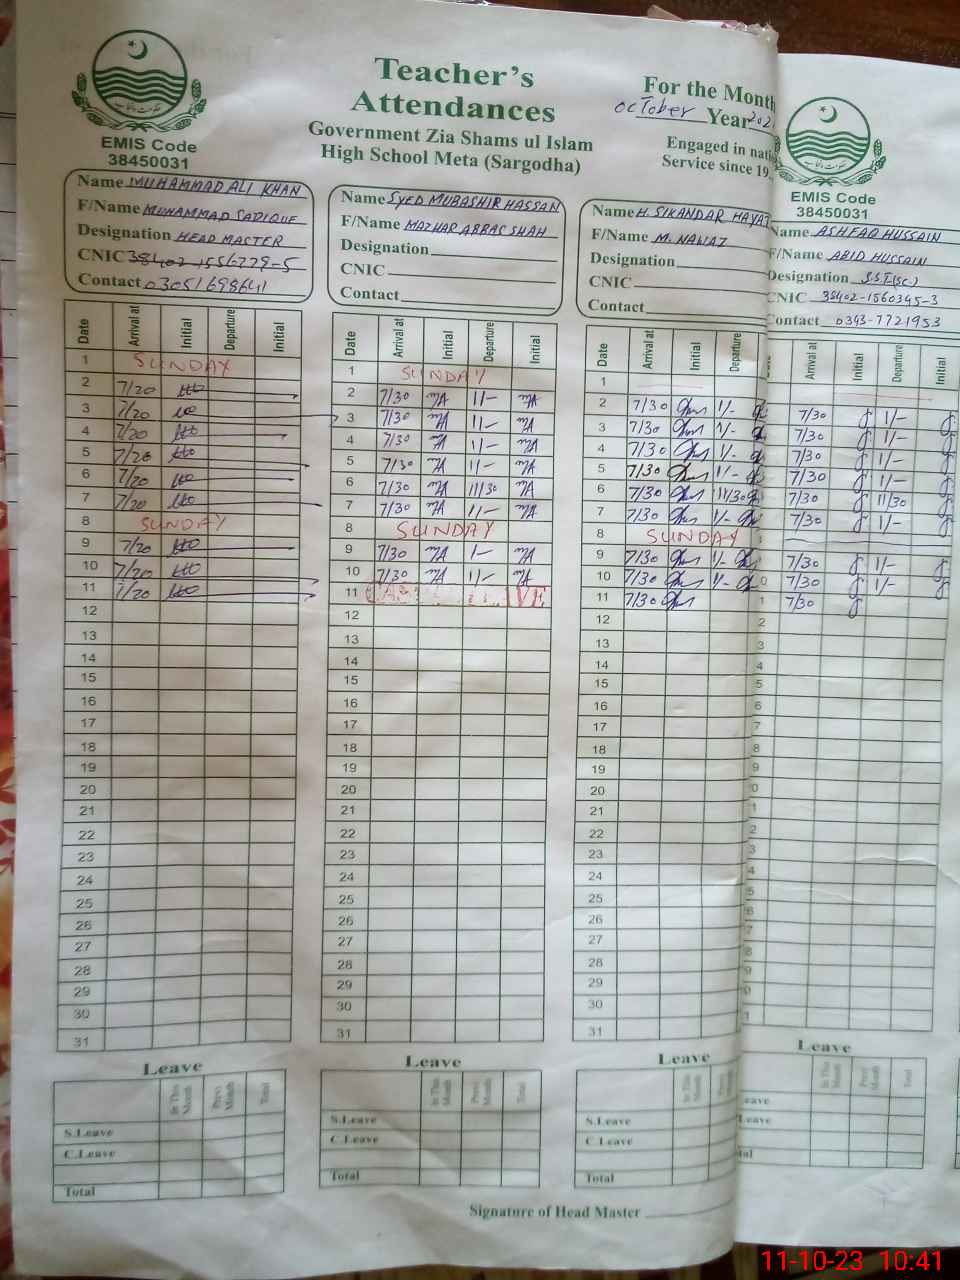 Teacher's
Attendances
Government Zia Shams ul Islam
High School Meta (Sargodha)
For the Month
October Year 202
Engaged in nati
Service since 19
EMIS Code
38450031
Name MUHAMMAD ALI KHAN
F/Name MUHAMMAD SADIQUE
Designation HEAD MASTER
CNIC 38402-1556779-5
Contact 03051698641
Date Arrival at Initial Departure Initial
1 SUNDAY
2 7/20
3 7/20
4 7/20
5 7/20
6 7/20
7 7/20
8 SUNDAY
9 7/20
10 7/20
11 7/20
12
13
14
15
16
17
18
19
20
21
22
23
24
25
26
27
28
29
30
31
Leave
In This Month Previ Month Total
S.Leave
C.Leave
Total
Name SYED MUBASHIR HASSAN
F/Name MAZHAR ABBAS SHAH
Designation
CNIC
Contact
Date Arrival at Initial Departure Initial
1 SUNDAY
2 7/30 MA 1/- MA
3 7/30 MA 1/- MA
4 7/30 MA 1/- MA
5 7/30 MA 1/- MA
6 7/30 MA 11/30 MA
7 7/30 MA 1/- MA
8 SUNDAY
9 7/30 MA 1- MA
10 7/30 MA 1/- MA
11
12
13
14
15
16
17
18
19
20
21
22
23
24
25
26
27
28
29
30
31
Leave
In This Month Previ Month Total
S.Leave
C.Leave
Total
Name H. SIKANDAR HAYAT
F/Name M. NAWAZ
Designation
CNIC
Contact
Date Arrival at Initial Departure
1
2 7/30 1/-
3 7/30 1/-
4 7/30 1/-
5 7/30 1/-
6 7/30 11/30
7 7/30 1/-
8 SUNDAY
9 7/30 1/-
10 7/30 1/-
11 7/30
12
13
14
15
16
17
18
19
20
21
22
23
24
25
26
27
28
29
30
31
Leave
In This Month Previ Month
S.Leave
C.Leave
Total
Signature of Head Master
EMIS Code
38450031
Name ASHFAQ HUSSAIN
F/Name ABID HUSSAIN
Designation S.S.T(SC)
CNIC 38402-1560345-3
Contact 0343-7721953
Arrival at Initial Departure Initial
7/30 1/-
7/30 1/-
7/30 1/-
7/30 1/-
7/30 11/30
7/30 1/-
7/30 1/-
0 7/30 1/-
1 7/30
2
3
4
5
6
7
8
9
0
1
2
3
4
5
6
7
8
9
0
1
Leave
In This Month Previ Month Total
eave
Leave
tal
11-10-23 10:41